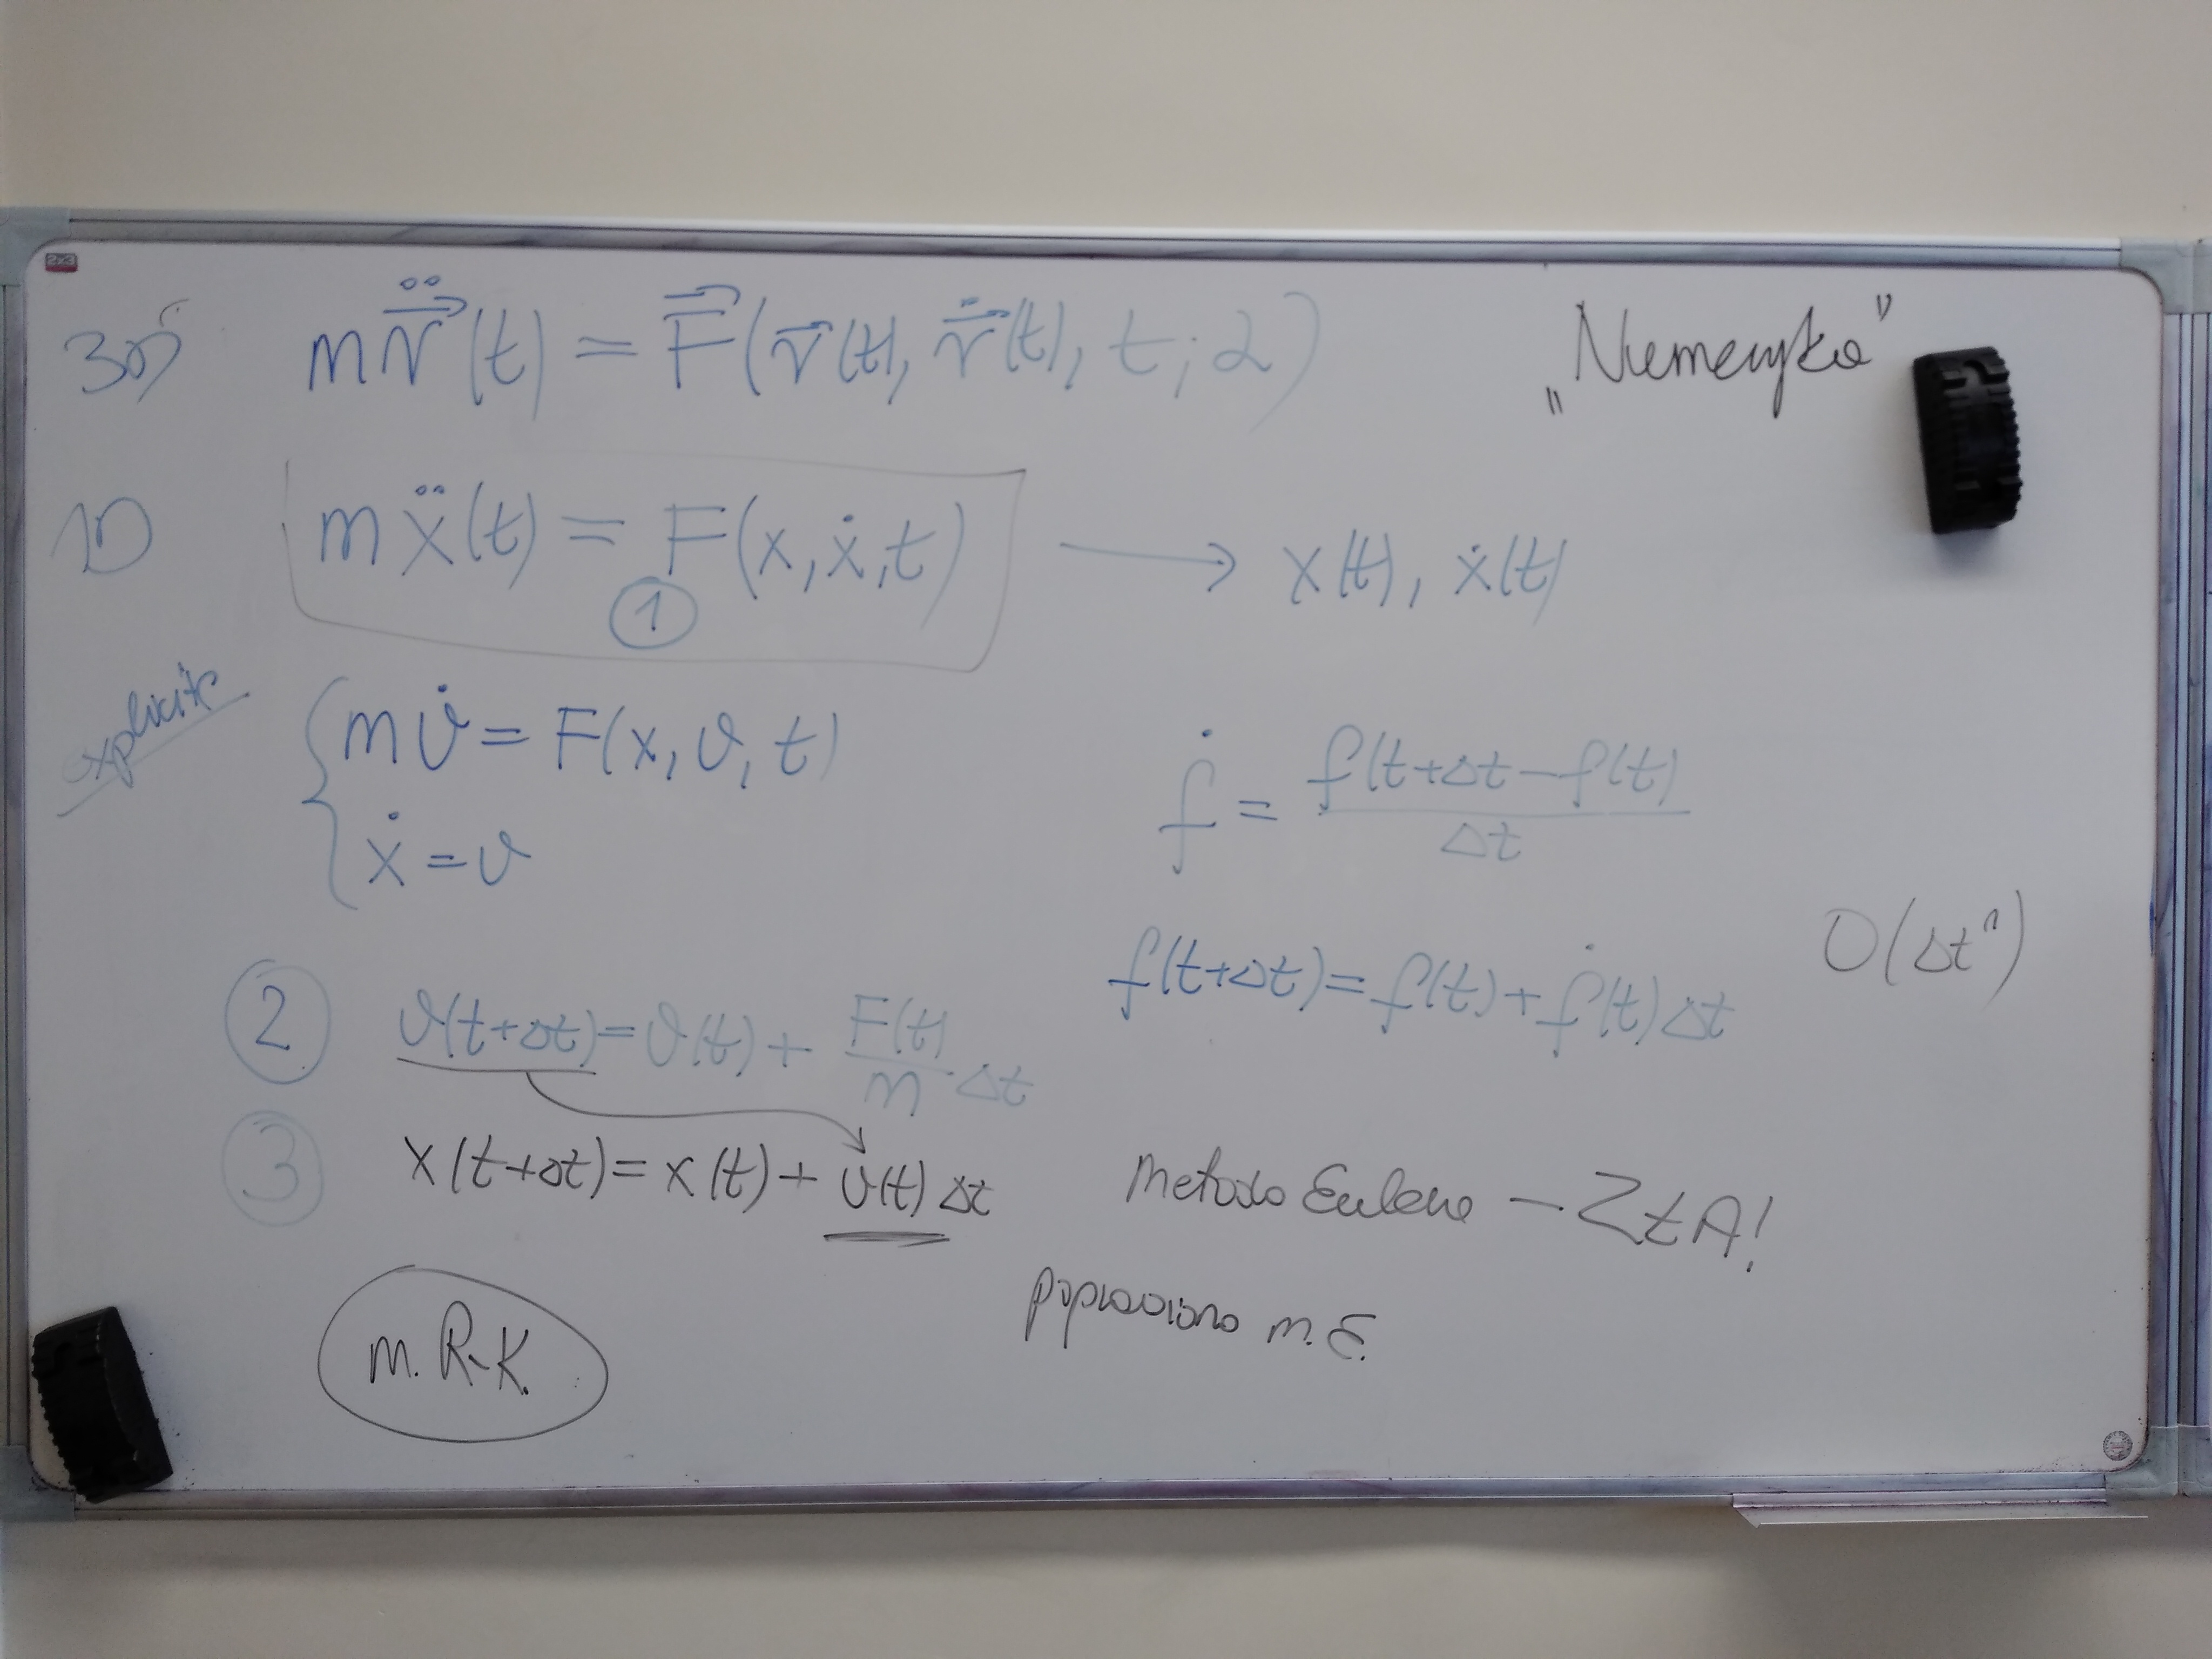 3D m r⃗̈(t) = F⃗(r⃗(t), r⃗̇(t), t; α) „Numeryka”
1D mẍ(t) = F(x, ẋ, t) ⟶ x(t), ẋ(t)
①
explicite
{ mv̇ = F(x, v, t)
ẋ = v
ḟ = f(t+Δt − f(t) / Δt
f(t+Δt) = f(t) + ḟ(t)Δt O(Δtⁿ)
② v(t+Δt) = v(t) + F(t)/m Δt
③ x(t+Δt) = x(t) + v(t) Δt
Metoda Eulera – ZŁA!
poprawiona m. E.
m. R-K.